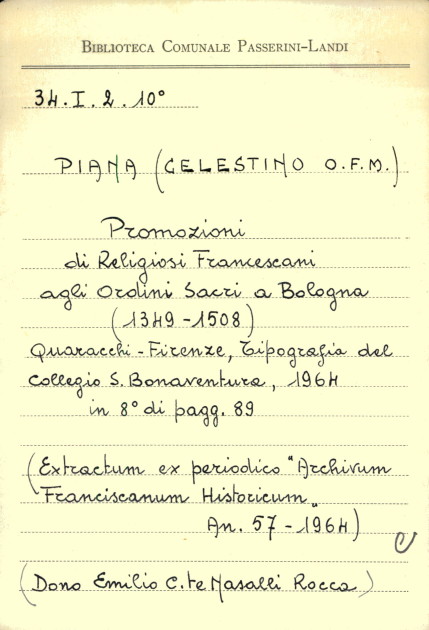 BIBLIOTECA COMUNALE PASSERINI-LANDI
34.I.2.10°
PIANA (CELESTINO O.F.M.)
Promozioni
di Religiosi Francescani
agli Ordini Sacri a Bologna
(1349-1508)
Quaracchi-Firenze, Tipografia del
Collegio S. Bonaventura, 1964
in 8° di pagg. 89
(Extractum ex periodico "Archivum
Franciscanum Historicum„
An. 57-1964)
(Dono Emilio C.te Nasalli Rocca)